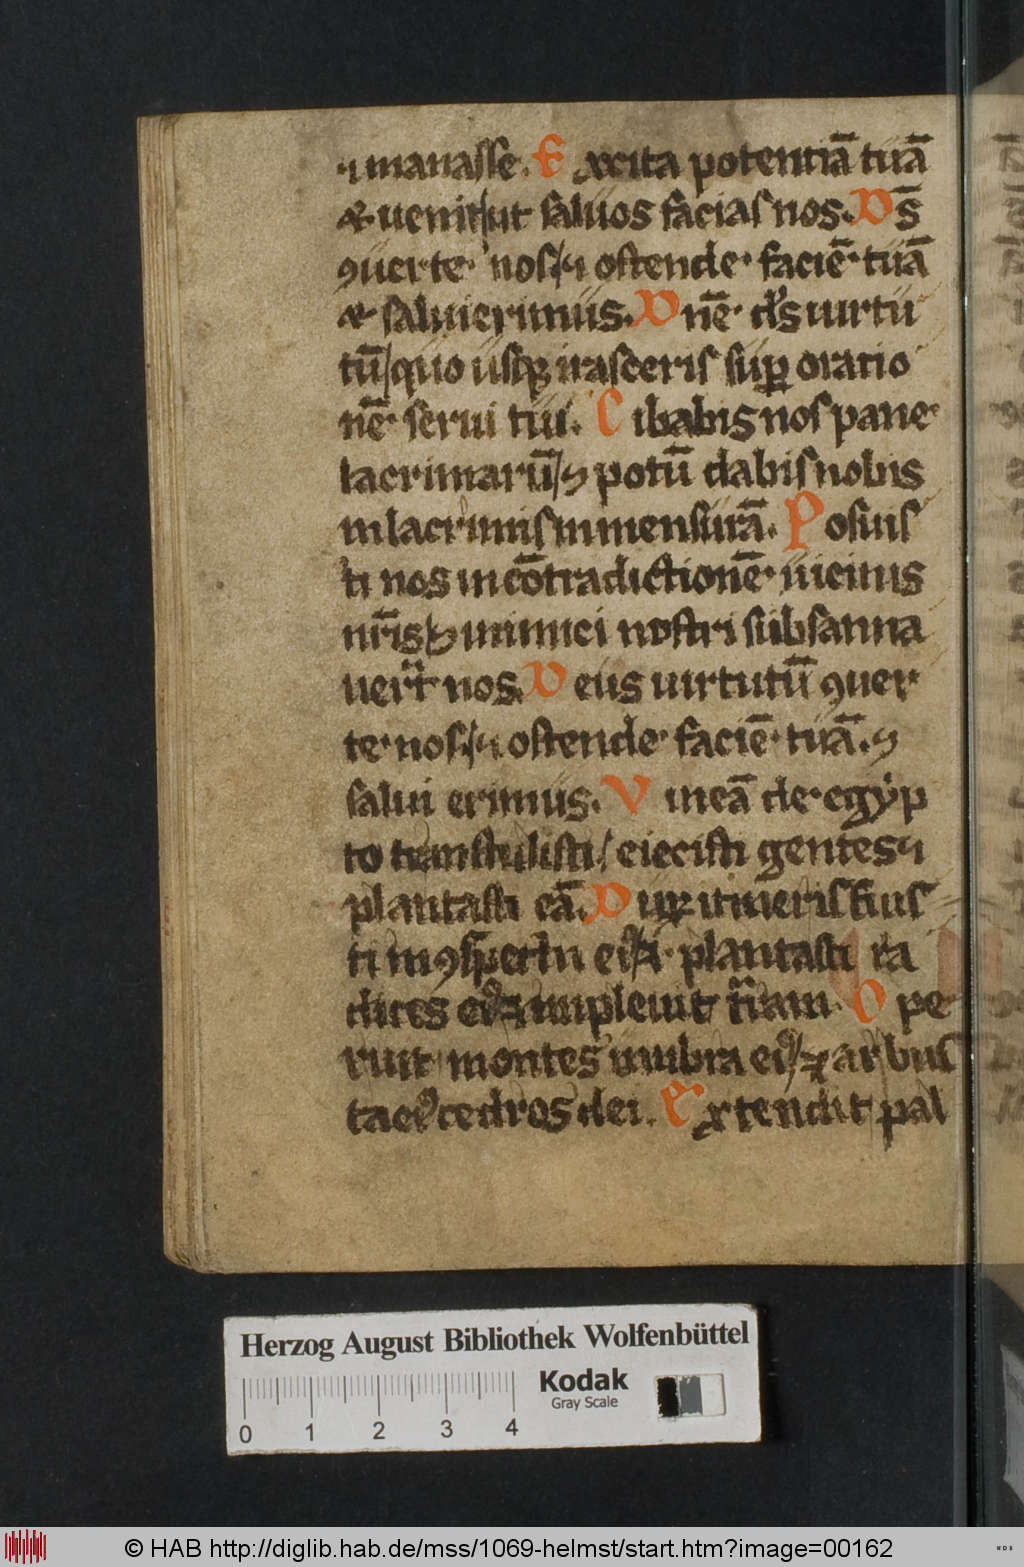 ⁊ manasse. Excita potentiā tuā
& ueni / ut saluos facias nos. Ds̄
ꝯuerte nos / ⁊ ostende faciē tuā
& salui erimus. Dnē ds uirtu
tū / quo usqꝫ irasceris suꝑ oratio
nē serui tui. Cibabis nos pane
lacrimarū / ⁊ potū dabis nobis
in lacrimis in mensurā. Posuis
ti nos in cōtradictionē uicinis
nr̄is / ⁊ inimici nostri subsanna
uerūt nos. Deus uirtutū ꝯuer
te nos / ⁊ ostende faciē tuā. ⁊
salui erimus. Vineā de egyp
to transtulisti / eiecisti gentes ⁊
plantasti eā. Dux itineris fuis
ti in ꝯspectu eiꝰ / ⁊ plantasti ra
dices eiꝰ ⁊ impleuit t̄ram. Ope
ruit montes umbra eiꝰ / ⁊ arbus
ta eiꝰ cedros dei. Extendit pal
Herzog August Bibliothek Wolfenbüttel
Kodak
Gray Scale
0 1 2 3 4
© HAB http://diglib.hab.de/mss/1069-helmst/start.htm?image=00162